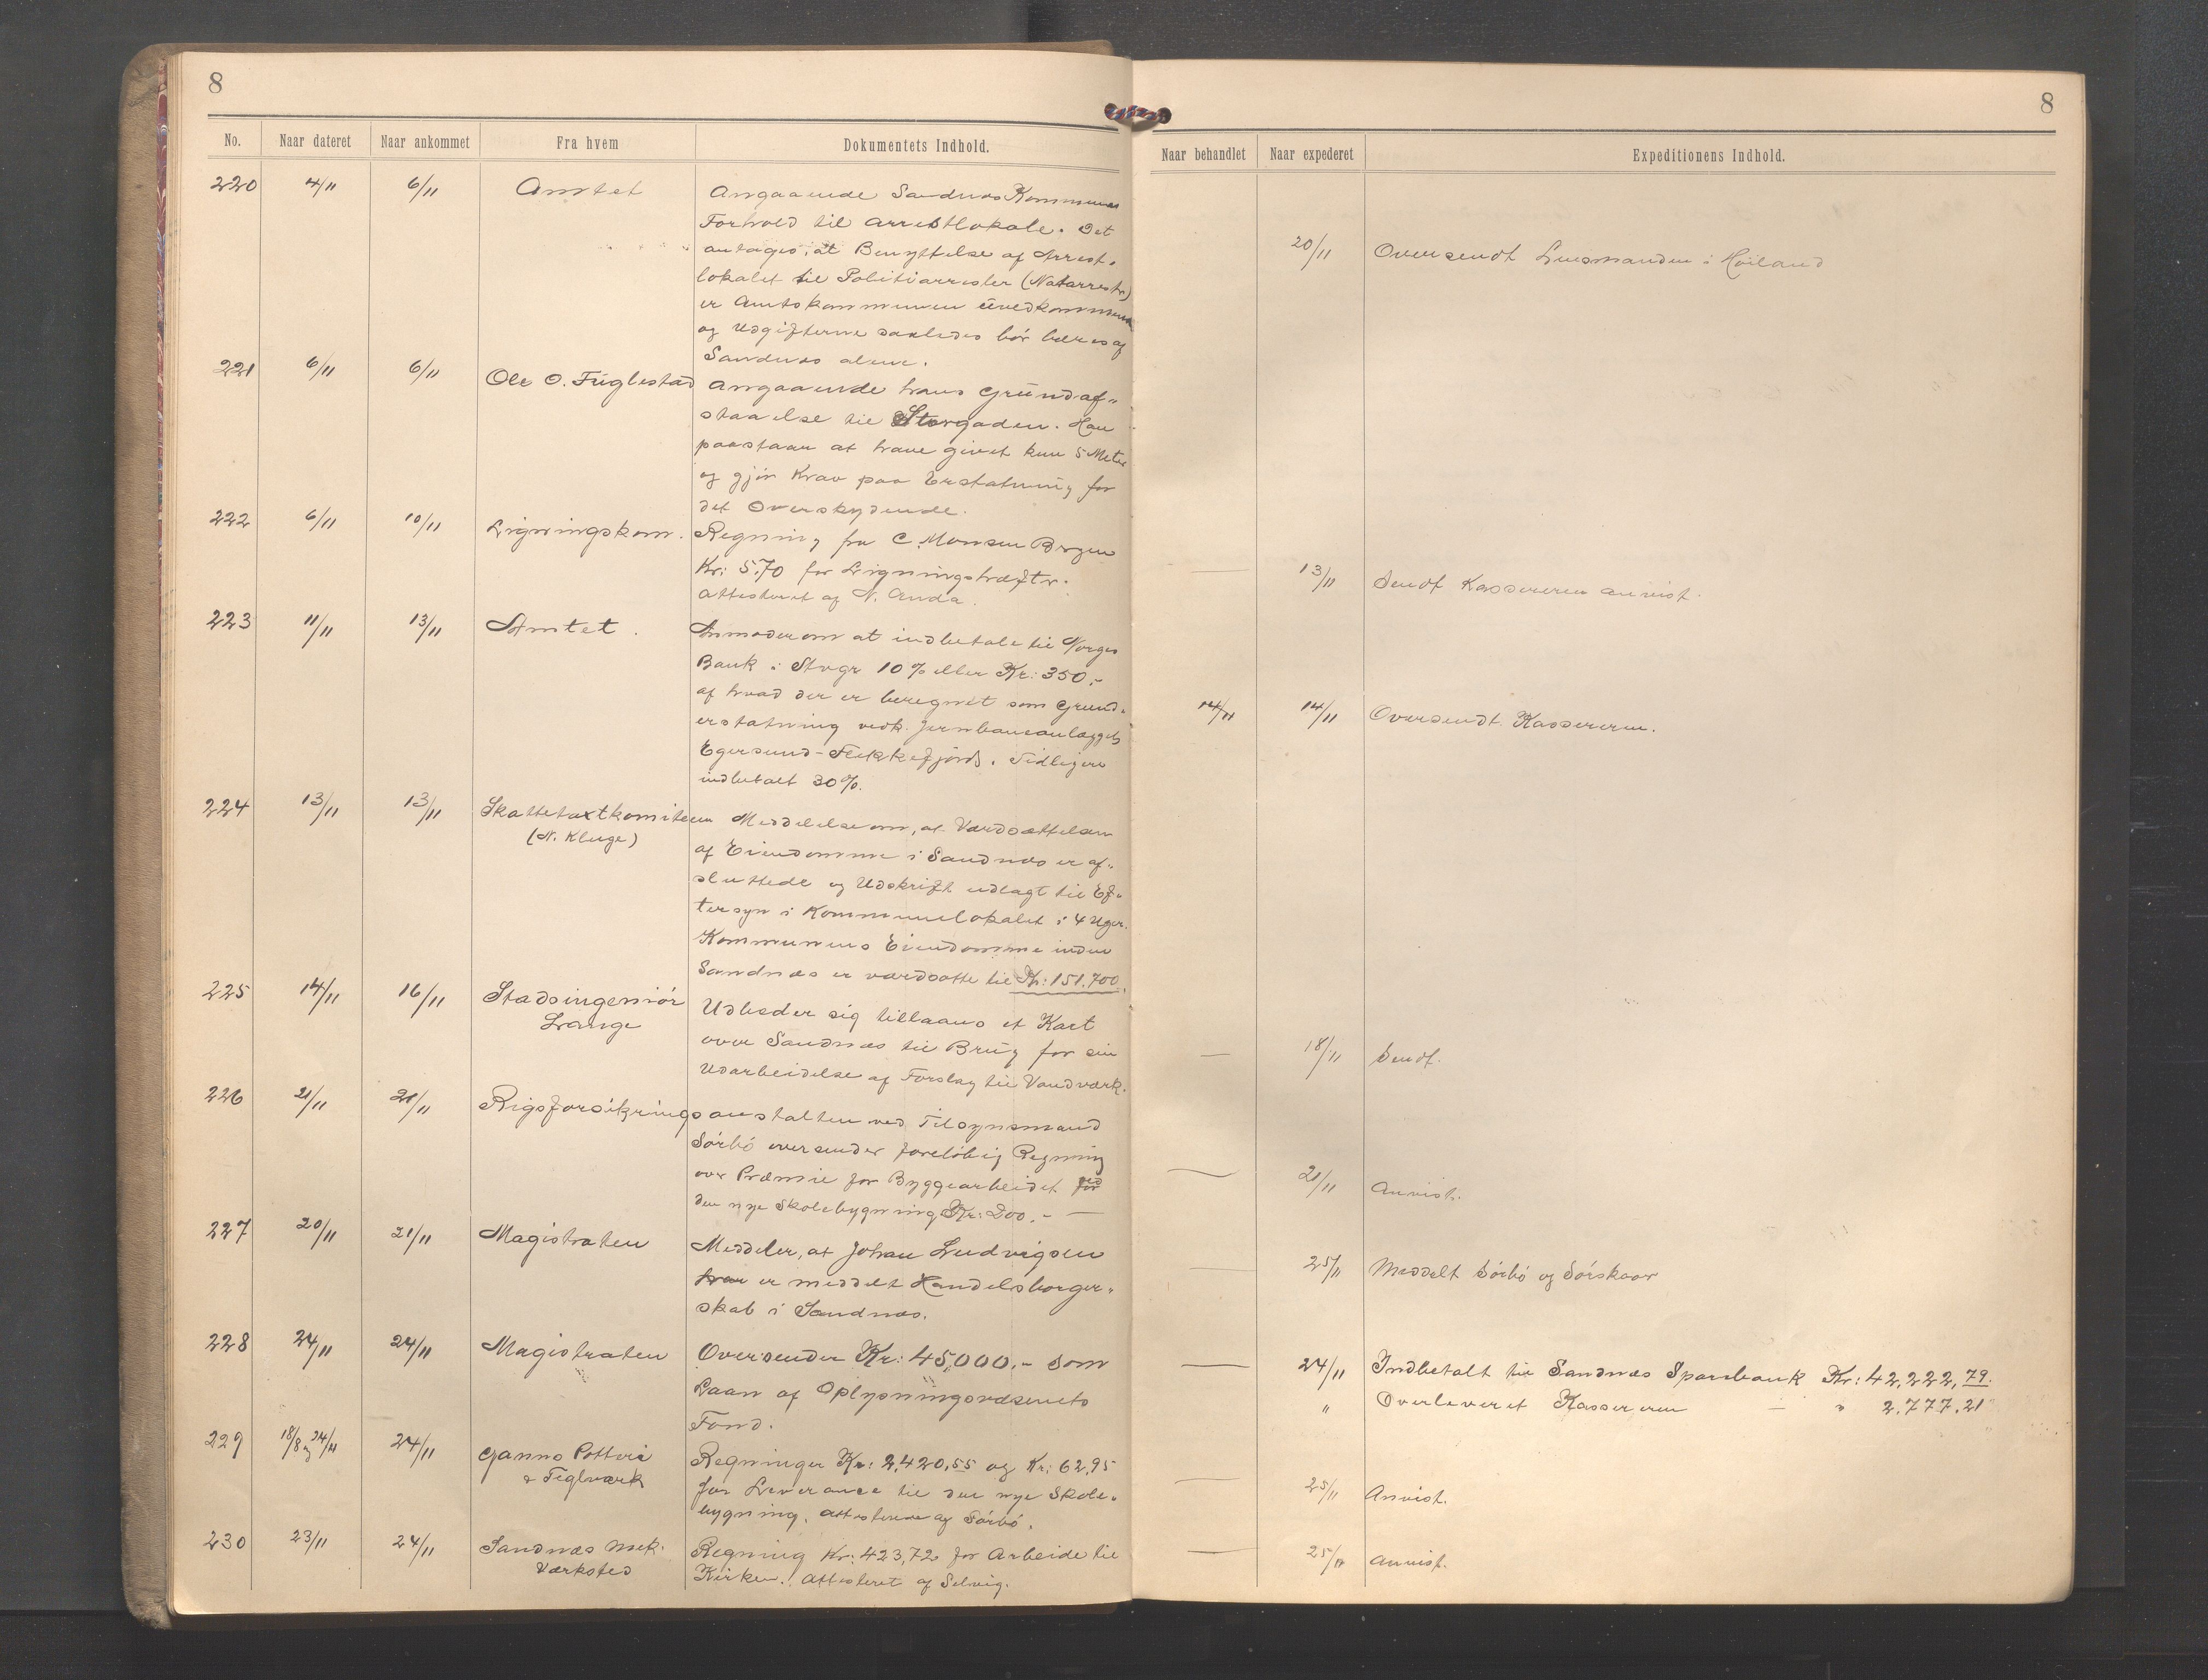 8
No. Naar dateret Naar ankommet Fra hvem Dokumentets Indhold.
220 4/11 6/11 Amtet Angaaende Sandnæs Kommunes
Forhold til Arrestlokale. Det
antages, at Benyttelse af Arrest-
lokalet til Politiarrester (Natarrester)
er Amtskommunen uvedkommende
og Udgifterne saaledes bør bæres af
Sandnæs alene.
221 6/11 6/11 Ole O. Fuglestad Angaaende hans Grundaf-
staaelse til Storgaden. Han
paastaar at have givet kun 5 Meter
og gjør Krav paa Erstatning for
det Overskydende.
222 6/11 10/11 Ligningskom. Regning fra C. Monsen Bergen
Kr: 5.70 for Ligningshæfter.
Attesteret af N. Anda.
223 11/11 13/11 Amtet. Anmoder om at indbetale til Norges
Bank i Stvgr 10% eller Kr: 350,-
af hvad der er beregnet som Grund-
erstatning vedk. Jernbaneanlægget
Egersund-Flekkefjord. Tidligere
indbetalt 30%.
224 13/11 13/11 Skattetaxtkomiteen Meddelelse om, at Værdsættelsen
(N. Kluge) af Eiendomme i Sandnæs er af-
sluttede og Udskrift udlagt til Ef-
tersyn i Kommunelokalet i 4 Uger.
Kommunens Eiendomme inden
Sandnæs er værdsatte til Kr: 151.700.
225 14/11 16/11 Stadsingeniør Udbeder sig tillaans et Kart
Lange over Sandnæs til Brug for sin
Udarbeidelse af Forslag til Vandværk.
226 21/11 21/11 Rigsforsikringsanstalten ved Tilsynsmand
Sørbø oversender foreløbig Regning
over Præmie for Byggearbeidet for ved
den nye Skolebygning Kr: 200.- —
227 20/11 21/11 Magistraten Meddeler, at Johan Ludvigsen
har er meddelt Handelsborger-
skab i Sandnæs.
228 24/11 24/11 Magistraten Oversender Kr: 45,000.- som
Laan af Oplysningsvæsenets
Fond.
229 18/8 og 24/11 24/11 Ganns Potteri Regninger Kr: 2,420,55 og Kr: 62,95
& Teglværk for Leverance til den nye Skole-
bygning. Attesterede af Sørbø.
230 23/11 24/11 Sandnæs Mek. Regning Kr: 423,72 for Arbeide til
Værksted Kirken. Attesteret af Selvig.
8
Naar behandlet Naar expederet Expeditionens Indhold.
20/11 Oversendt Lensmanden i Høiland
— 13/11 Sendt Kassereren anvist.
14/11 14/11 Oversendt Kassereren.
— 18/11 Sendt.
— 21/11 Anvist.
— 25/11 Meddelt Sørbø og Sørskaar
— 24/11 Indbetalt til Sandnæs Sparebank Kr: 42,222,79.
" Overleveret Kassereren — " 2.777.21
— 25/11 Anvist.
— 25/11 Anvist.